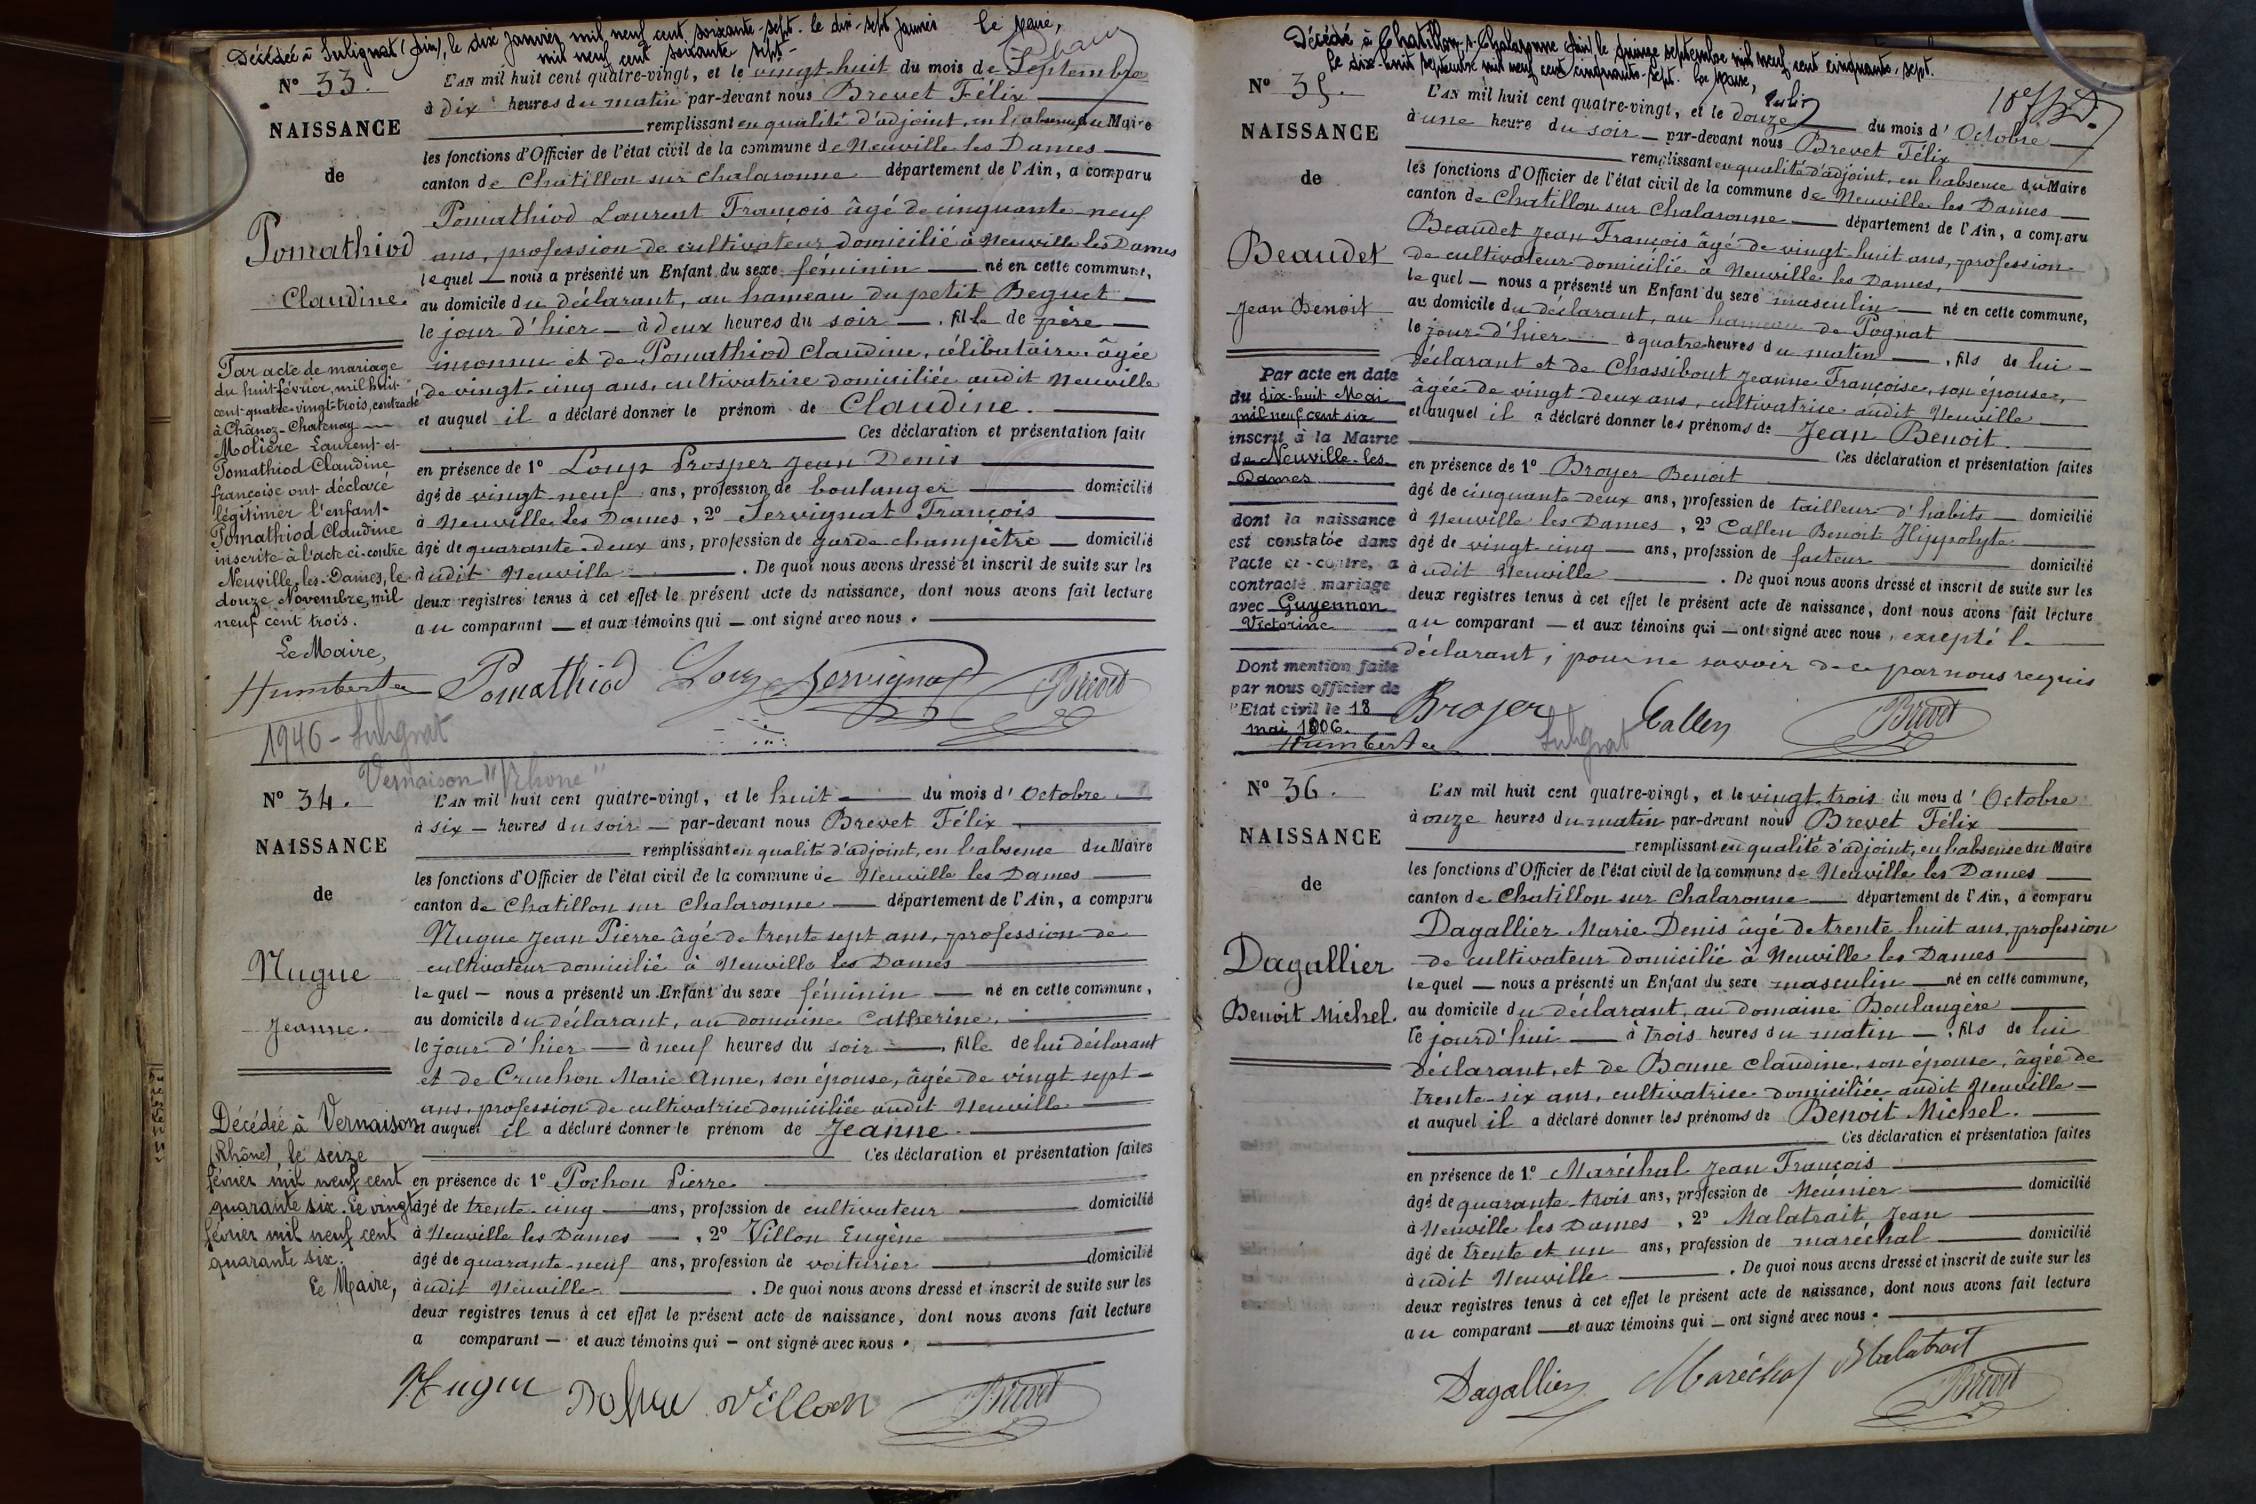 Décédée à Sulignat (Ain), le dix janvier mil neuf cent soixante-sept. Le dix-sept janvier
mil neuf cent soixante sept.
Le Maire,
N° 33.
NAISSANCE
de
Pomathiod
Claudine.
L'AN mil huit cent quatre-vingt, et le vingt-huit du mois de Septembre
à dix heures du matin par-devant nous Brevet Félix
remplissant en qualité d'adjoint, en l'absence du Maire
les fonctions d'Officier de l'état civil de la commune de Neuville les Dames
canton de Chatillon sur Chalaronne département de l'Ain, a comparu
Pomathiod Laurent François âgé de cinquante neuf
ans, profession de cultivateur domicilié à Neuville les Dames
lequel nous a présenté un Enfant du sexe féminin né en cette commune,
au domicile du déclarant, au hameau du petit Beguet
le jour d'hier à deux heures du soir, fille de père
inconnu et de Pomathiod Claudine, célibataire âgée
de vingt-cinq ans, cultivatrice domiciliée audit Neuville
et auquel il a déclaré donner le prénom de Claudine.
Ces déclaration et présentation faites
en présence de 1° Loup Prosper Jean Denis
âgé de vingt-neuf ans, profession de boulanger domicilié
à Neuville les Dames, 2° Servignat François
âgé de quarante-deux ans, profession de garde champêtre domicilié
audit Neuville. De quoi nous avons dressé et inscrit de suite sur les
deux registres tenus à cet effet le présent acte de naissance, dont nous avons fait lecture
au comparant et aux témoins qui ont signé avec nous.
Par acte de mariage
du huit février, mil huit
cent-quatre-vingt-trois, contracté
à Chânoz-Chatenay
Molière Laurent et
Pomathiod Claudine
françoise ont déclaré
légitimer l'enfant
Pomathiod Claudine
inscrite à l'acte ci-contre
Neuville-les-Dames, le
douze Novembre, mil
neuf cent trois.
Le Maire,
Humbert
Pomathiod Loup Servignat Brevet
1946 - Sulignat
Vernaison "Rhone"
N° 34.
NAISSANCE
de
Nugue
Jeanne.
L'AN mil huit cent quatre-vingt, et le huit du mois d'Octobre
à six heures du soir par-devant nous Brevet Félix
remplissant en qualité d'adjoint, en l'absence du Maire
les fonctions d'Officier de l'état civil de la commune de Neuville les Dames
canton de Chatillon sur Chalaronne département de l'Ain, a comparu
Nugue Jean Pierre âgé de trente sept ans, profession de
cultivateur domicilié à Neuville les Dames
lequel nous a présenté un Enfant du sexe féminin né en cette commune,
au domicile du déclarant, au domaine Catherine,
le jour d'hier à neuf heures du soir, fille de lui déclarant
et de Cruchon Marie Anne, son épouse, âgée de vingt-sept
ans, profession de cultivatrice domiciliée audit Neuville
et auquel il a déclaré donner le prénom de Jeanne.
Ces déclaration et présentation faites
en présence de 1° Pochon Pierre
âgé de trente-cinq ans, profession de cultivateur domicilié
à Neuville les Dames, 2° Villon Eugène
âgé de quarante-neuf ans, profession de voiturier domicilié
audit Neuville. De quoi nous avons dressé et inscrit de suite sur les
deux registres tenus à cet effet le présent acte de naissance, dont nous avons fait lecture
a comparant et aux témoins qui ont signé avec nous.
Décédée à Vernaison
(Rhône), le seize
février mil neuf cent
quarante six. Le vingt
février mil neuf cent
quarante six.
Le Maire,
Nugue Villon Brevet
Décédé à Chatillon-s-Chalaronne (Ain) le quinze septembre mil neuf cent cinquante-sept.
Le dix-huit septembre mil neuf cent cinquante-sept. Le Maire,
N° 35.
NAISSANCE
de
Beaudet
Jean Benoit
L'AN mil huit cent quatre-vingt, et le douze du mois d'Octobre
à une heure du soir par-devant nous Brevet Félix
remplissant en qualité d'adjoint, en l'absence du Maire
les fonctions d'Officier de l'état civil de la commune de Neuville les Dames
canton de Chatillon sur Chalaronne département de l'Ain, a comparu
Beaudet Jean François âgé de vingt-huit ans, profession
de cultivateur domicilié à Neuville les Dames,
lequel nous a présenté un Enfant du sexe masculin né en cette commune,
au domicile du déclarant, au hameau de Pognat
le jour d'hier à quatre heures du matin, fils de lui
déclarant et de Chassibout Jeanne Françoise, son épouse,
âgée de vingt-deux ans, cultivatrice audit Neuville
et auquel il a déclaré donner les prénoms de Jean Benoit.
Ces déclaration et présentation faites
en présence de 1° Broyer Benoit
âgé de cinquante deux ans, profession de tailleur d'habits domicilié
à Neuville les Dames, 2° Callen Benoit Hippolyte
âgé de vingt-cinq ans, profession de facteur domicilié
audit Neuville. De quoi nous avons dressé et inscrit de suite sur les
deux registres tenus à cet effet le présent acte de naissance, dont nous avons fait lecture
au comparant et aux témoins qui ont signé avec nous, excepté le
déclarant, pour ne savoir de ce par nous requis
Par acte en date
du dix-huit Mai
mil neuf cent six
inscrit à la Mairie
de Neuville-les-
Dames
dont la naissance
est constatée dans
l'acte ci-contre, a
contracté mariage
avec Guyennon
Victorine
Dont mention faite
par nous officier de
l'Etat civil le 18
mai 1906.
Humbert
Broyer Callen Brevet
Sulignat
N° 36.
NAISSANCE
de
Dagallier
Benoit Michel.
L'AN mil huit cent quatre-vingt, et le vingt-trois du mois d'Octobre
à onze heures du matin par-devant nous Brevet Félix
remplissant en qualité d'adjoint, en l'absence du Maire
les fonctions d'Officier de l'état civil de la commune de Neuville les Dames
canton de Chatillon sur Chalaronne département de l'Ain, a comparu
Dagallier Marie Denis âgé de trente huit ans, profession
de cultivateur domicilié à Neuville les Dames
lequel nous a présenté un Enfant du sexe masculin né en cette commune,
au domicile du déclarant, au domaine Boulangère
le jourd'hui à trois heures du matin, fils de lui
déclarant, et de Bonne Claudine, son épouse, âgée de
trente-six ans, cultivatrice domiciliée audit Neuville
et auquel il a déclaré donner les prénoms de Benoit Michel.
Ces déclaration et présentation faites
en présence de 1° Maréchal Jean François
âgé de quarante-trois ans, profession de Meunier domicilié
à Neuville les Dames, 2° Malatrait Jean
âgé de trente et un ans, profession de maréchal domicilié
audit Neuville. De quoi nous avons dressé et inscrit de suite sur les
deux registres tenus à cet effet le présent acte de naissance, dont nous avons fait lecture
au comparant et aux témoins qui ont signé avec nous.
Dagallier Maréchal Malatrait Brevet